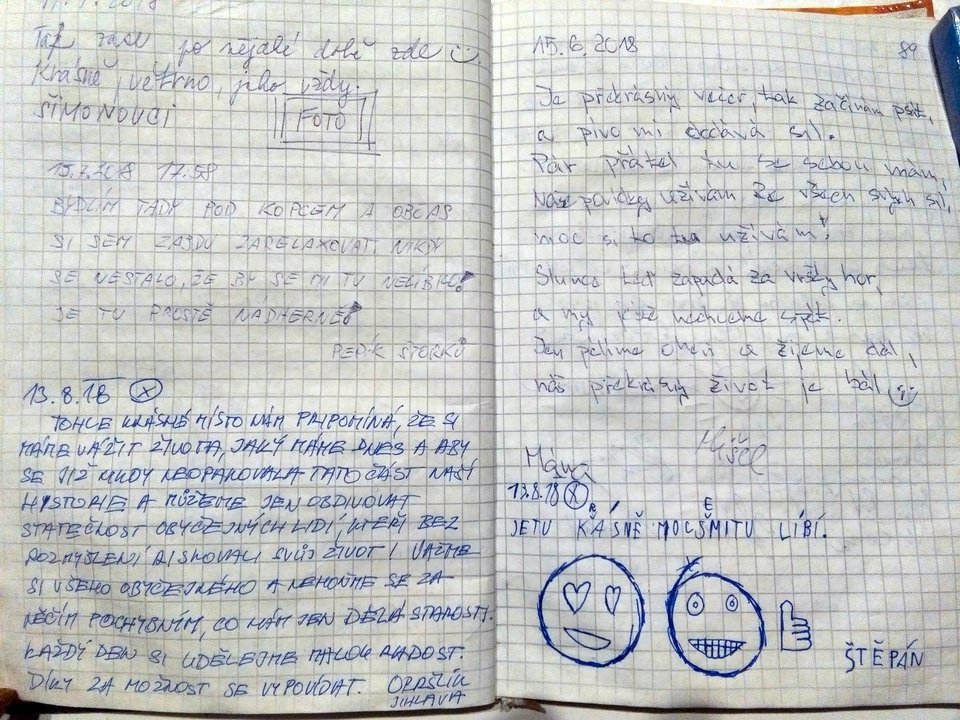 Tak zase po nějaké době zde
Krásně, větrno, jako vždy.
ŠIMONOVCI
FOTO
15.7.2018 17:58
BYDLÍM TADY POD KOPCEM A OBČAS
SI SEM ZAJDU ZARELAXOVAT. NIKDY
SE NESTALO, ŽE BY SE MI TU NELÍBILO!
JE TU PROSTĚ NÁDHERNĚ!
PEPÍK ŠTORKŮ
13.8.18 X
TOHLE KRÁSNÉ MÍSTO NÁM PŘIPOMÍNÁ, ŽE SI
MÁME VÁŽIT ŽIVOTA, JAKÝ MÁME DNES A ABY
SE JIŽ NIKDY NEOPAKOVALA TATO ČÁST NAŠÍ
HISTORIE A MŮŽEME JEN OBDIVOVAT
STATEČNOST OBYČEJNÝCH LIDÍ, KTEŘÍ BEZ
ROZMYŠLENÍ RISKOVALI SVŮJ ŽIVOT! VAŽME
SI VŠEHO OBYČEJNÉHO A NEHOŇME SE ZA
NĚČÍM POCHYBNÝM, CO NÁM JEN DĚLÁ STAROSTI.
KAŽDÝ DEN SI UDĚLEJME MALOU RADOST.
DÍKY ZA MOŽNOST SE VYPOVÍDAT.
JIHLAVA
15.6.2018
89
Je překrásný večer, tak začínám psát,
a pivo mi dodává sil.
Pár přátel tu se sebou mám,
užívám ze všech svých sil,
moc si to tu užívám!
Slunce teď zapadá za vršky hor,
a my ještě nechceme spát.
Jen pálíme oheň a žijeme dál,
náš překrásný život je bál
13.8.18 X
R E
JETU KÁSNĚ MOCŠMITU LÍBÍ.
ŠTĚPÁN